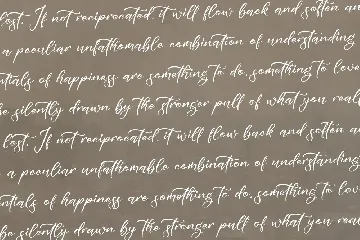 lost. If not reciprocated, it will flow back and soften an
a peculiar unfathomable combination of understanding
ntials of happiness are something to do, something to love
be silently drawn by the stronger pull of what you real
lost. If not reciprocated, it will flow back and soften a
a peculiar unfathomable combination of understanding
ntials of happiness are something to do, something to lov
be silently drawn by the stronger pull of what you rea